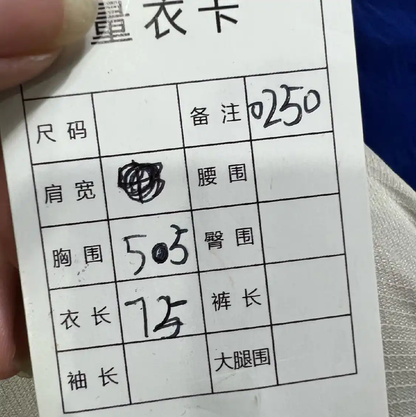 量衣卡
尺码 备注 0250
肩宽 腰围
胸围 50.5 臀围
衣长 75 裤长
袖长 大腿围